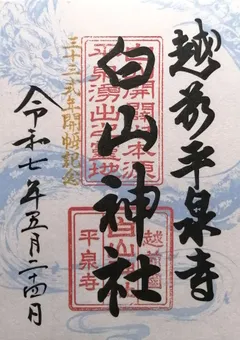 越前平泉寺
白山神社
三十三年開帳記念
令和七年五月二十四日
平泉湧出之霊地
越前國
白山神社
平泉寺